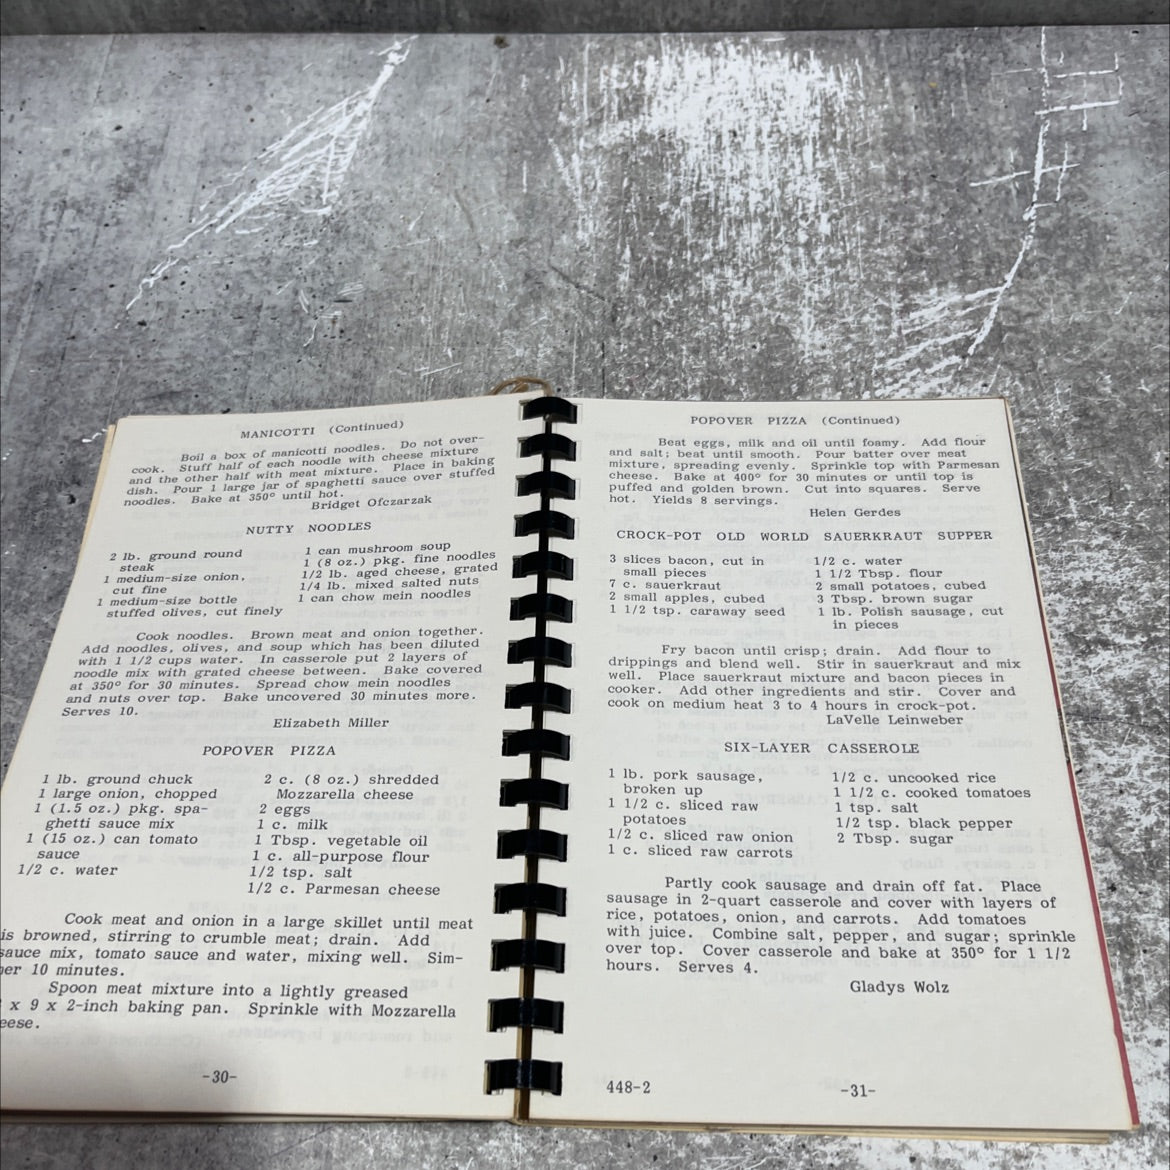 MANICOTTI (Continued)
Boil a box of manicotti noodles. Do not over-
cook. Stuff half of each noodle with cheese mixture
and the other half with meat mixture. Place in baking
dish. Pour 1 large jar of spaghetti sauce over stuffed
noodles. Bake at 350° until hot.
Bridget Ofczarzak
NUTTY NOODLES
2 lb. ground round
steak
1 medium-size onion,
cut fine
1 medium-size bottle
stuffed olives, cut finely
1 can mushroom soup
1 (8 oz.) pkg. fine noodles
1/2 lb. aged cheese, grated
1/4 lb. mixed salted nuts
1 can chow mein noodles
Cook noodles. Brown meat and onion together.
Add noodles, olives, and soup which has been diluted
with 1 1/2 cups water. In casserole put 2 layers of
noodle mix with grated cheese between. Bake covered
at 350° for 30 minutes. Spread chow mein noodles
and nuts over top. Bake uncovered 30 minutes more.
Serves 10.
Elizabeth Miller
POPOVER PIZZA
1 lb. ground chuck
1 large onion, chopped
1 (1.5 oz.) pkg. spa-
ghetti sauce mix
1 (15 oz.) can tomato
sauce
1/2 c. water
2 c. (8 oz.) shredded
Mozzarella cheese
2 eggs
1 c. milk
1 Tbsp. vegetable oil
1 c. all-purpose flour
1/2 tsp. salt
1/2 c. Parmesan cheese
Cook meat and onion in a large skillet until meat
is browned, stirring to crumble meat; drain. Add
sauce mix, tomato sauce and water, mixing well. Sim-
er 10 minutes.
Spoon meat mixture into a lightly greased
x 9 x 2-inch baking pan. Sprinkle with Mozzarella
eese.
-30-
POPOVER PIZZA (Continued)
Beat eggs, milk and oil until foamy. Add flour
and salt; beat until smooth. Pour batter over meat
mixture, spreading evenly. Sprinkle top with Parmesan
cheese. Bake at 400° for 30 minutes or until top is
puffed and golden brown. Cut into squares. Serve
hot. Yields 8 servings.
Helen Gerdes
CROCK-POT OLD WORLD SAUERKRAUT SUPPER
3 slices bacon, cut in
small pieces
7 c. sauerkraut
2 small apples, cubed
1 1/2 tsp. caraway seed
1/2 c. water
1 1/2 Tbsp. flour
2 small potatoes, cubed
3 Tbsp. brown sugar
1 lb. Polish sausage, cut
in pieces
Fry bacon until crisp; drain. Add flour to
drippings and blend well. Stir in sauerkraut and mix
well. Place sauerkraut mixture and bacon pieces in
cooker. Add other ingredients and stir. Cover and
cook on medium heat 3 to 4 hours in crock-pot.
LaVelle Leinweber
SIX-LAYER CASSEROLE
1 lb. pork sausage,
broken up
1 1/2 c. sliced raw
potatoes
1/2 c. sliced raw onion
1 c. sliced raw carrots
1/2 c. uncooked rice
1 1/2 c. cooked tomatoes
1 tsp. salt
1/2 tsp. black pepper
2 Tbsp. sugar
Partly cook sausage and drain off fat. Place
sausage in 2-quart casserole and cover with layers of
rice, potatoes, onion, and carrots. Add tomatoes
with juice. Combine salt, pepper, and sugar; sprinkle
over top. Cover casserole and bake at 350° for 1 1/2
hours. Serves 4.
Gladys Wolz
448-2
-31-